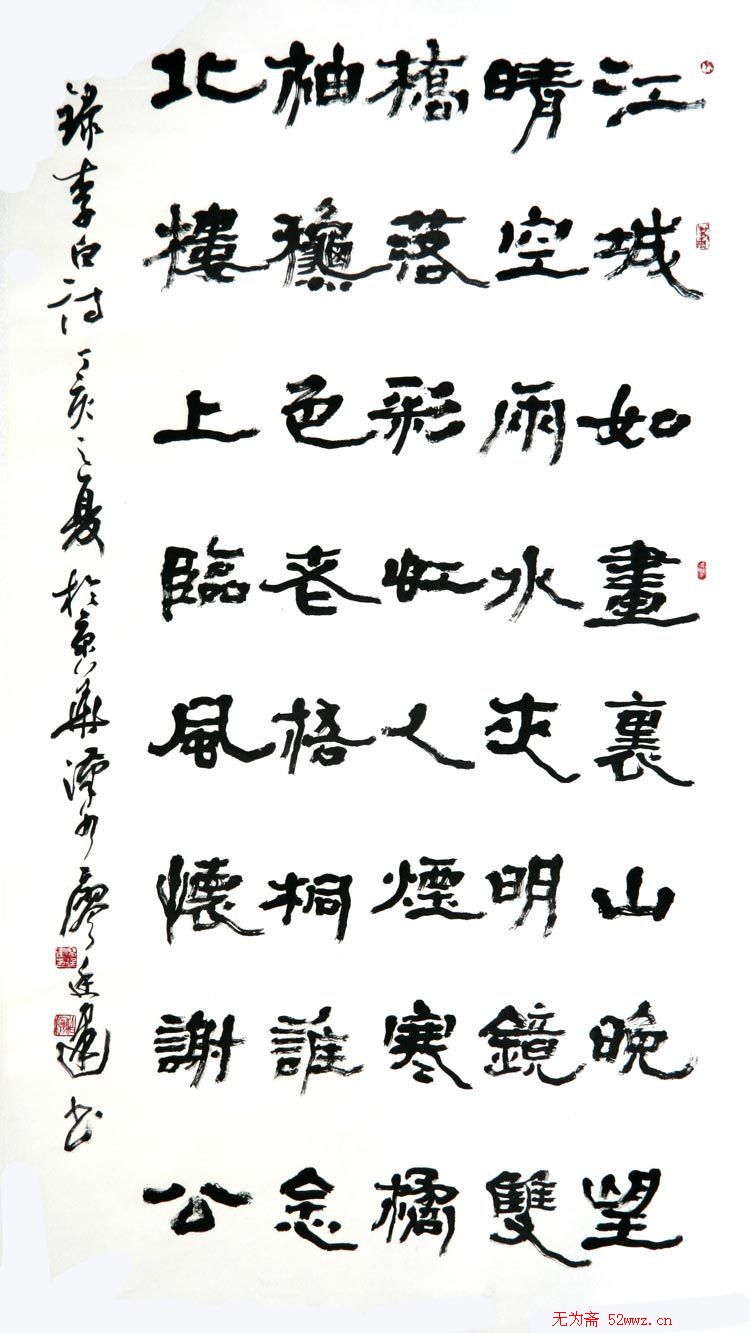 江城如畫裏山晚望
晴空兩水夾明鏡雙
橋落彩虹人煙寒橘
柚龝色老梧桐誰念
北樓上臨風懷謝公
錄李白詩丁亥之夏於京華廖建書
无为斋 52wwz.cn